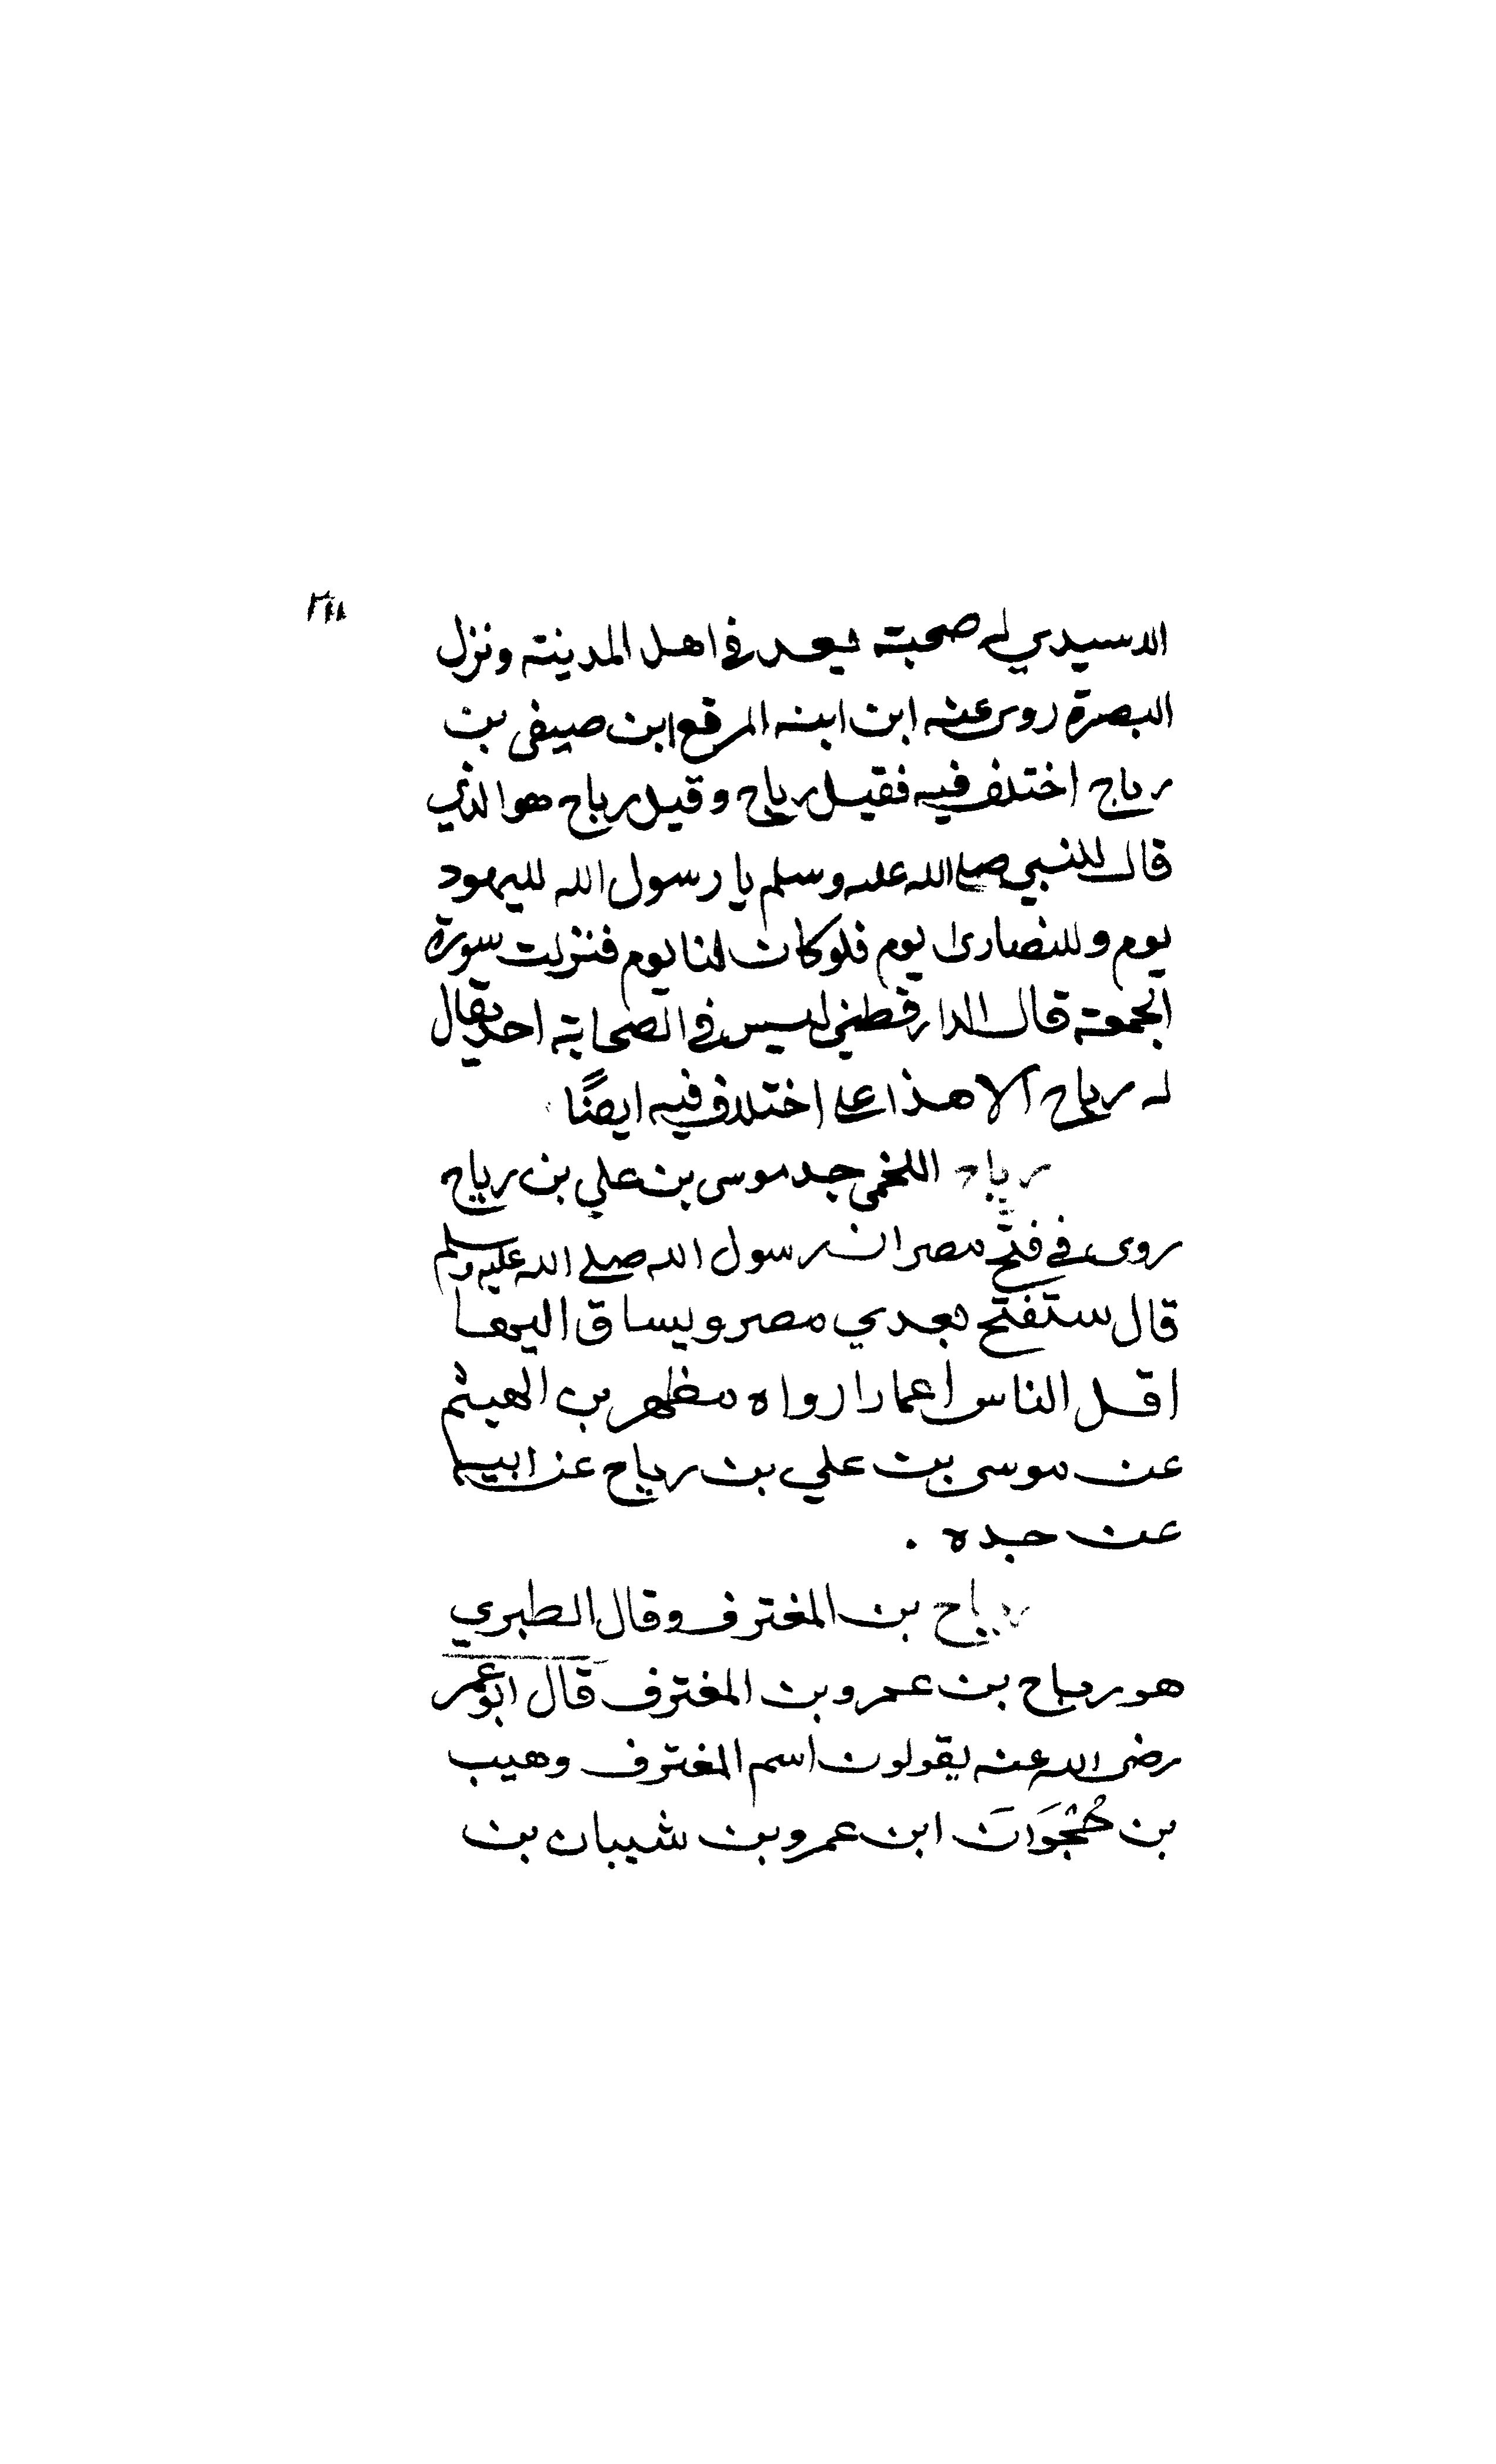 الاسيدي له صحبة يعد في اهل المدينة ونزل
البصرة روى عنه ابن ابنه المرقع ابن صيفى بن
رباح اختلف فيه فقيل رياح وقيل رباح هو الذي
قال للنبي صلى الله عليه وسلم يا رسول الله لليهود
يوم وللنصارى يوم فلو كان لنا يوم فنزلت سورة
الجمعة قال الدارقطني ليس في الصحابة احد يقال
له رياح الا هذا على اختلاف فيه ايضًا
رباح اللخمى جد موسى بن علي بن رباح
روى في فتح مصر ان رسول الله صلى الله عليه وسلم
قال ستفتح بعدي مصر ويساق اليها
اقل الناس أعمارا رواه مطهر بن الهيثم
عن موسى بن علي بن رباح عن ابيه
عن جده .
رباح بن المغترف وقال الطبري
هو رباح بن عمرو بن المغترف قال ابو عمر
رضى الله عنه يقولون اسم المغترف وهيب
بن حُجْوَانَ ابن عمرو بن شيبان بن